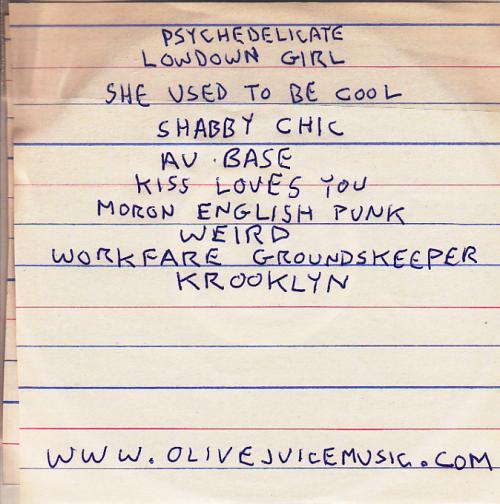 PSYCHEDELICATE
LOWDOWN GIRL
SHE USED TO BE COOL
SHABBY CHIC
AU BASE
KISS LOVES YOU
MORON ENGLISH PUNK
WEIRD
WORKFARE GROUNDSKEEPER
KROOKLYN
WWW.OLIVEJUICEMUSIC.COM